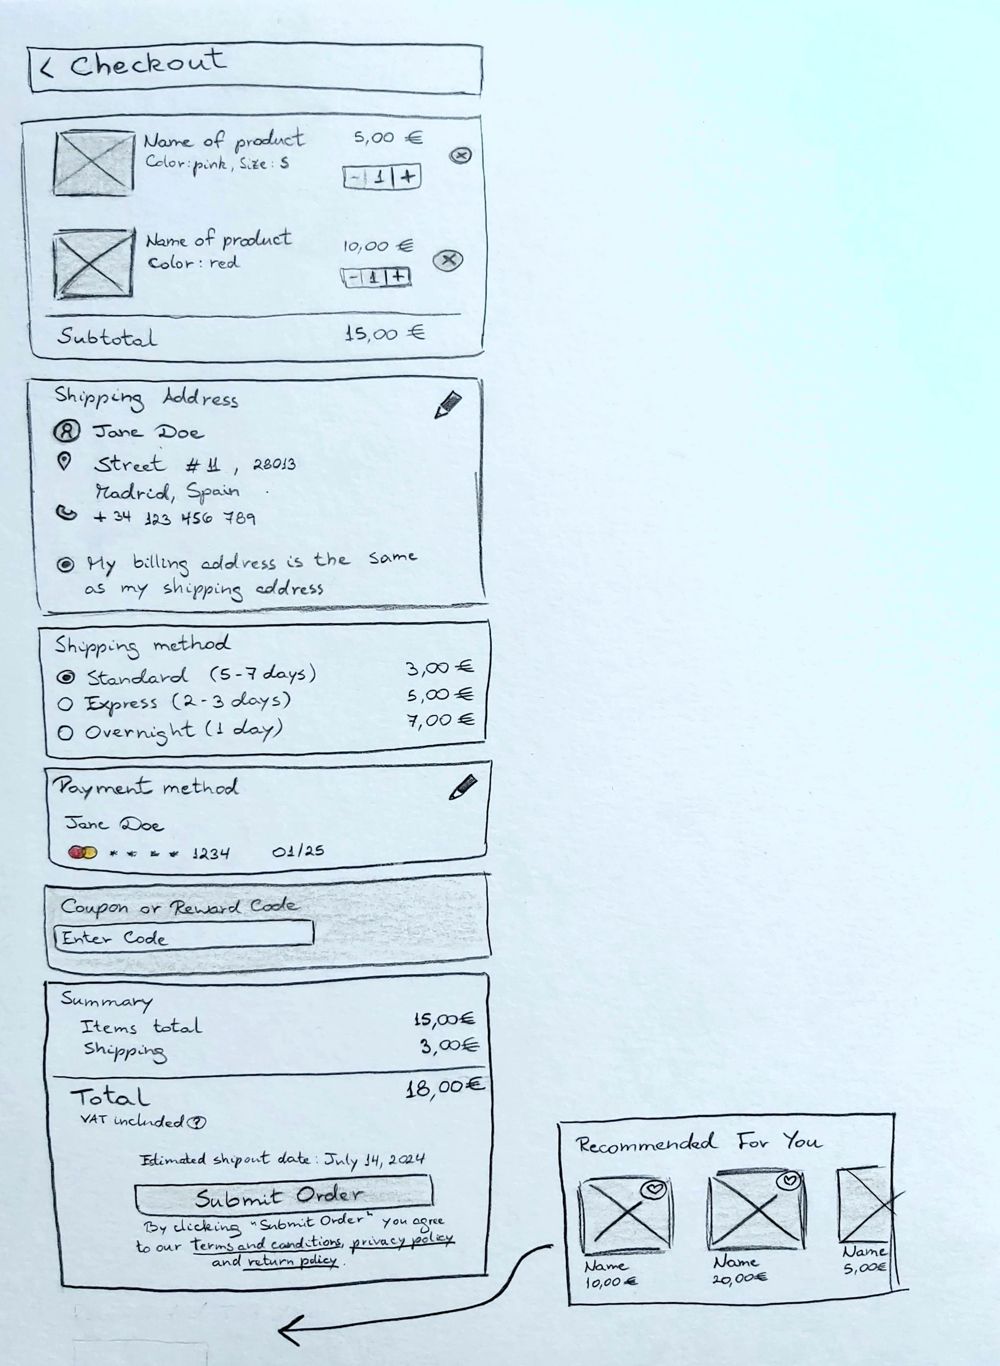 < Checkout
Name of product 5,00 €
Color: pink, Size: S
- 1 +
Name of product 10,00 €
Color: red
- 1 +
Subtotal 15,00 €
Shipping Address
Jane Doe
Street #11, 28013
Madrid, Spain
+34 123 456 789
My billing address is the same
as my shipping address
Shipping method
Standard (5-7 days) 3,00 €
Express (2-3 days) 5,00 €
Overnight (1 day) 7,00 €
Payment method
Jane Doe
* * * * 1234 01/25
Coupon or Reward Code
Enter Code
Summary
Items total 15,00€
Shipping 3,00€
Total 18,00€
VAT included ?
Estimated shipout date: July 14, 2024
Submit Order
By clicking "Submit Order" you agree
to our Terms and conditions, privacy policy
and return policy.
Recommended For You
Name Name Name
10,00€ 20,00€ 5,00€